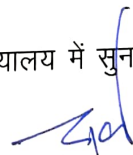 यालय में सुन